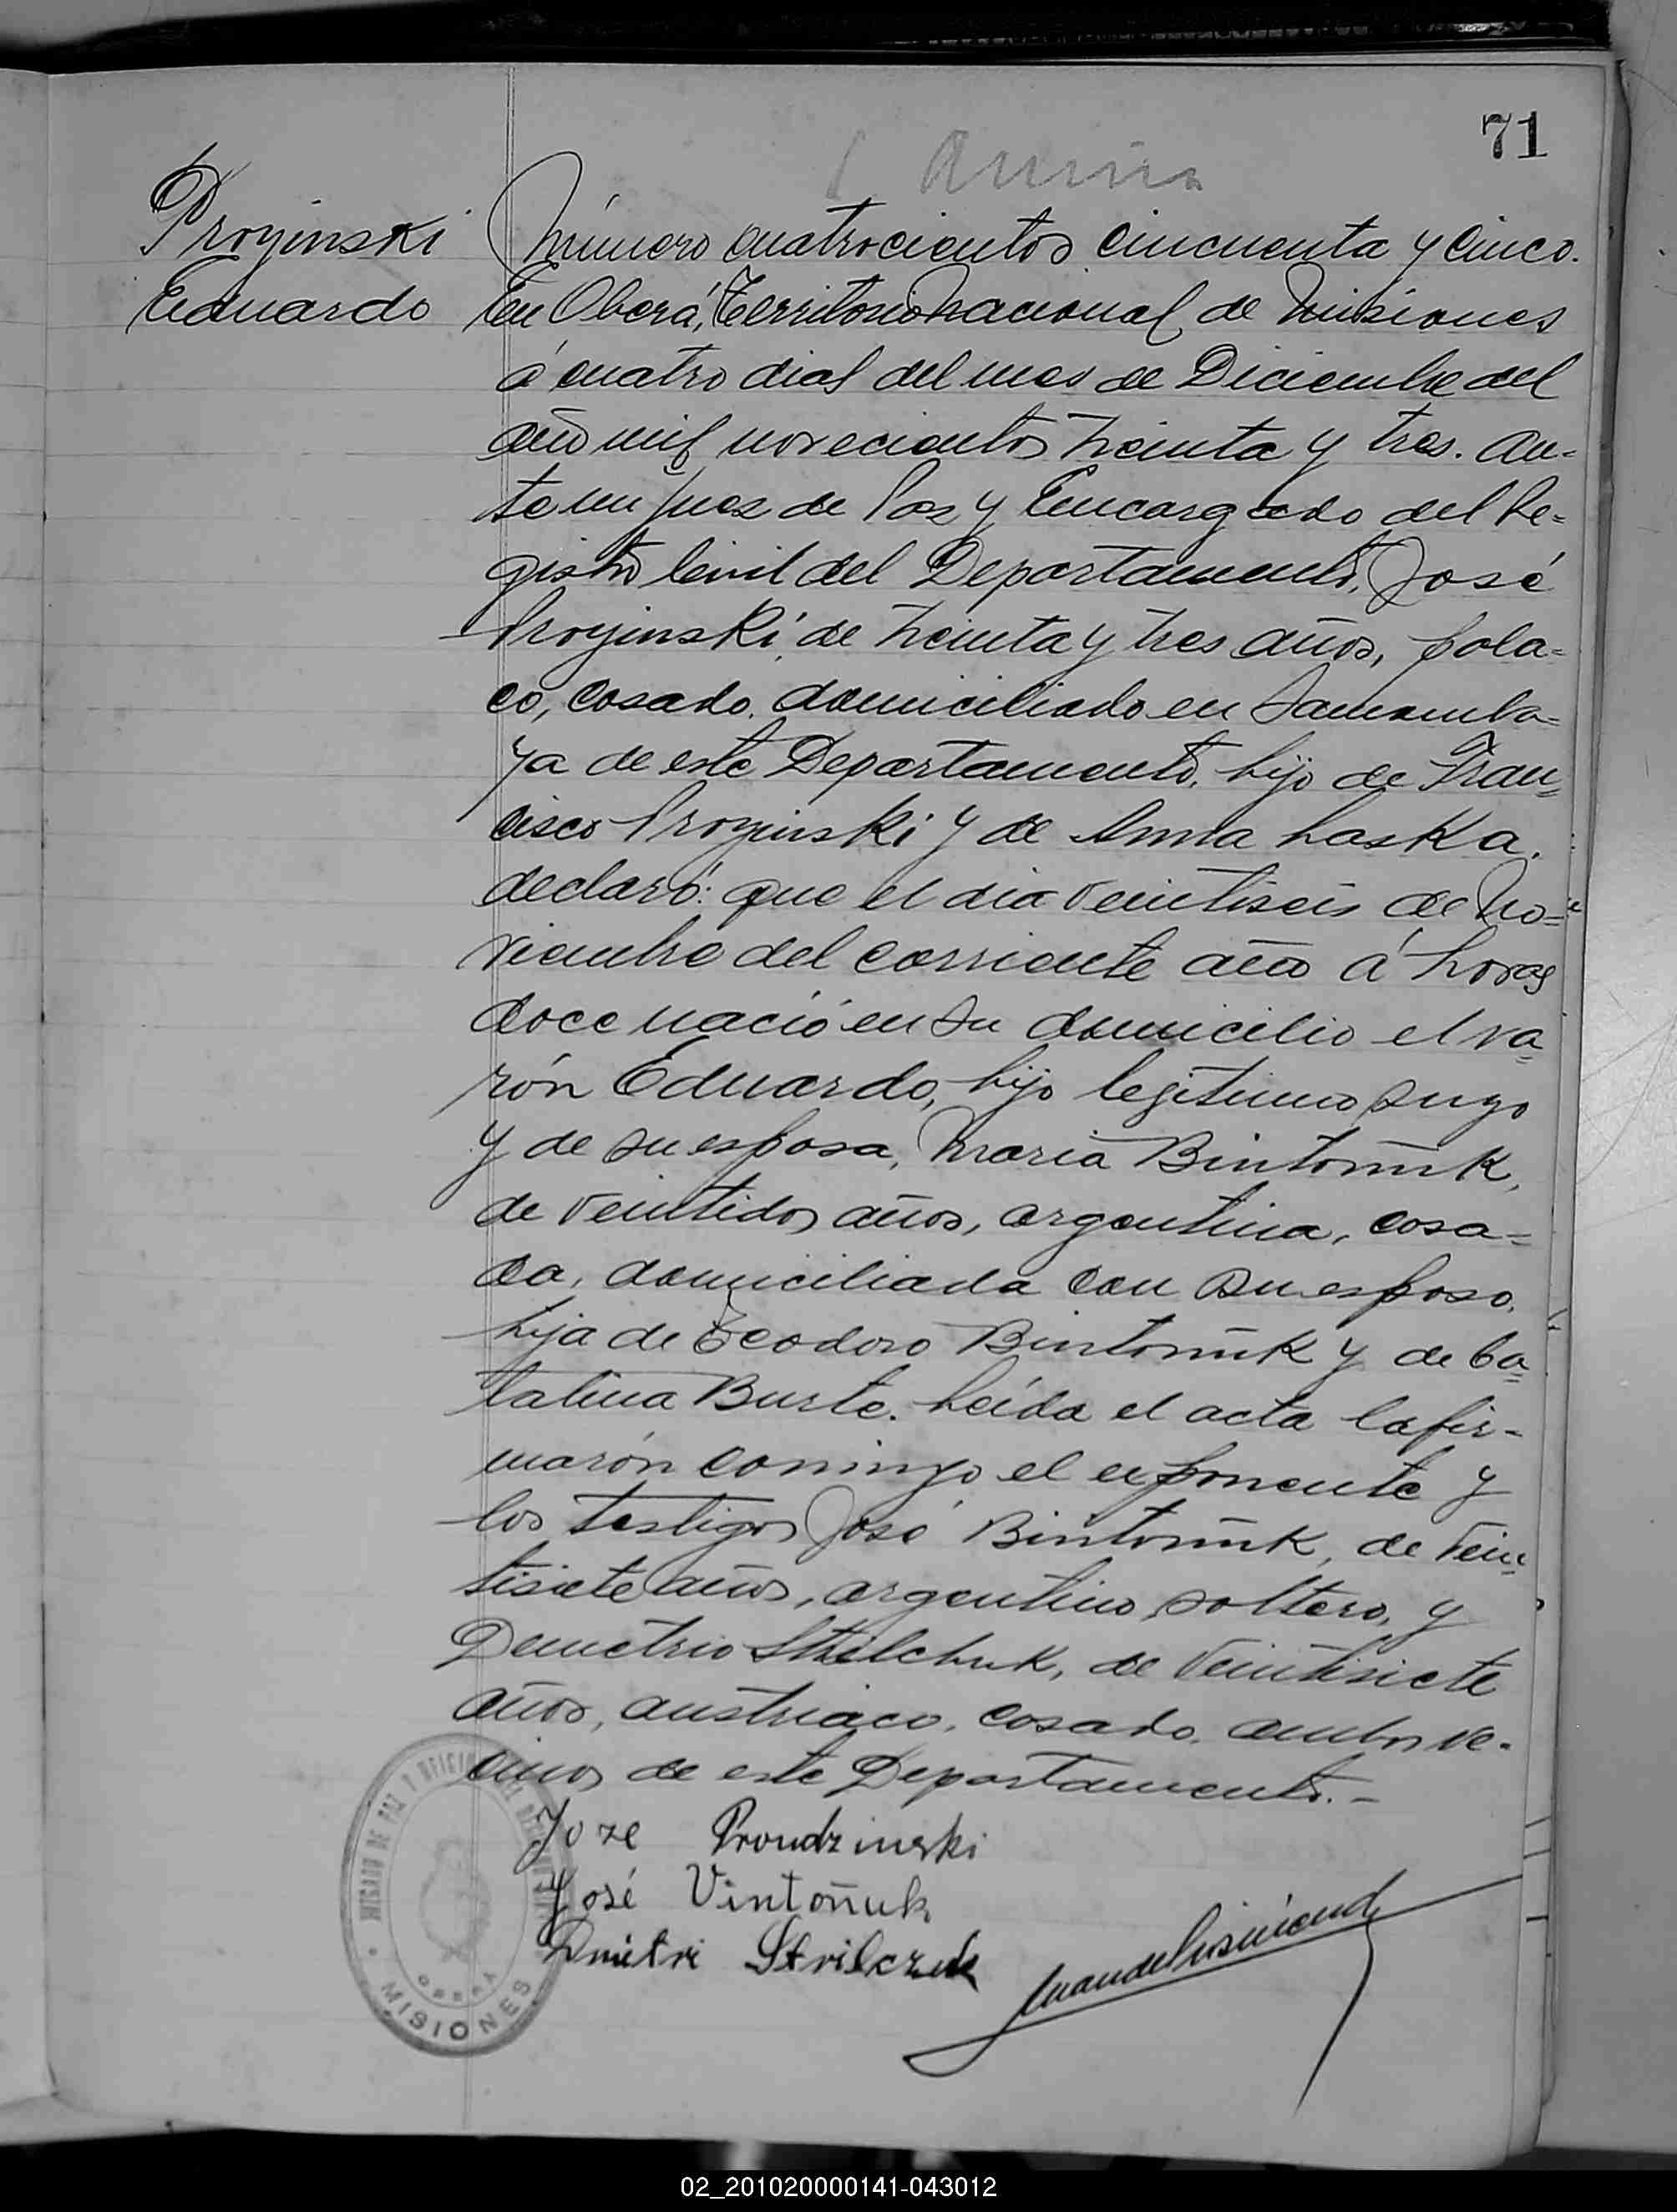 71
Proyinski
Eduardo
Número cuatrocientos cincuenta y cinco.
En Oberá, Territorio Nacional de Misiones
á cuatro dias del mes de Diciembre del
año mil novecientos treinta y tres. An-
te mi Juez de Paz y Encargado del Re-
gistro Civil del Departamento, José
Proyinski, de treinta y tres años, pola-
co, casado, domiciliado en Samamba-
ya de este Departamento, hijo de Fran-
cisco Proyinski y de Anna Laska,
declaró: que el dia veintiseis de No-
viembre del corriente año á horas
doce nació en su domicilio el va-
rón Eduardo, hijo legitimo suyo
y de su esposa, Maria Bintoñuk,
de veintidos años, argentina, casa-
da, domiciliada con su esposo,
hija de Teodoro Bintoñuk y de Ca-
talina Burte. Leída el acta la fir-
marón conmigo el exponente y
los testigos José Bintoñuk, de vein-
tisiete años, argentino, soltero, y
Demetrio Strilchuk, de veintisiete
años, austriaco, casado, ambos ve-
cinos de este Departamento.-
Joze Proudzinski
José Vintoñuk
Dmitri Strilczuk
JUZGADO DE PAZ Y OFICINA DEL REGISTRO CIVIL
OBERÁ
MISIONES
02_201020000141-043012